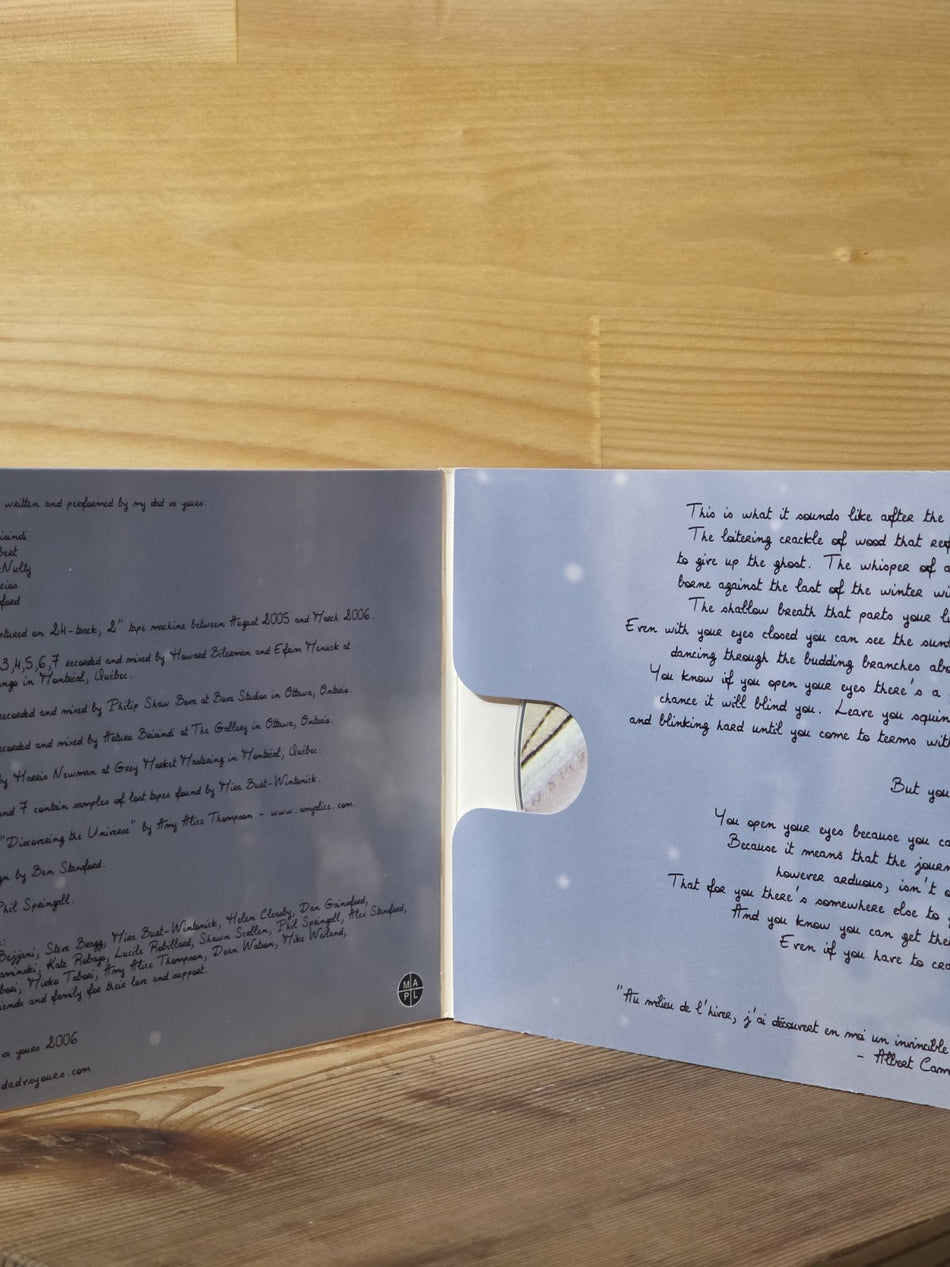 written and performed by my dad vs yours:
2"
captured on 24-track, 2" tape machine between August 2005 and March 2006.
3,4,5,6,7 recorded and mixed by Howard Bilerman and Efrim Menuck at
in Montréal, Québec.
recorded and mixed by Philip Shaw Bova at Bova Studios in Ottawa, Ontario.
recorded and mixed by Arturo Brisindi at The Gallery in Ottawa, Ontario.
by Harris Newman at Grey Market Mastering in Montréal, Québec.
and 7 contain samples of lost tapes found by Mira Burt-Wintonick.
"Discovering the Universe" by Amy Alice Thompson - www.amyalice.com.
by Ben Stanford.
Phil Springall.
Bejjani, Steve Beagg, Mira Burt-Wintonick, Helen Cleasby, Dan Gainsford,
Kate Robago, Lucile Robillard, Shawn Scallen, Phil Springall, Alex Stanford,
Mieko Tabori, Amy Alice Thompson, Dean Watson, Mike Weiland,
friends and family for their love and support.
vs yours 2006
MAPL
This is what it sounds like after the
The loitering crackle of wood that
to give up the ghost. The whisper of
borne against the last of the winter
The shallow breath that parts your
Even with your eyes closed you can see the
dancing through the budding branches
You know if you open your eyes there's a
chance it will blind you. Leave you
and blinking hard until you come to terms
But you
You open your eyes because you
Because it means that the
however arduous, isn't
That for you there's somewhere else to
And you know you can get
Even if you have to
"Au milieu de l'hiver, j'ai découvert en moi un invincible
- Albert